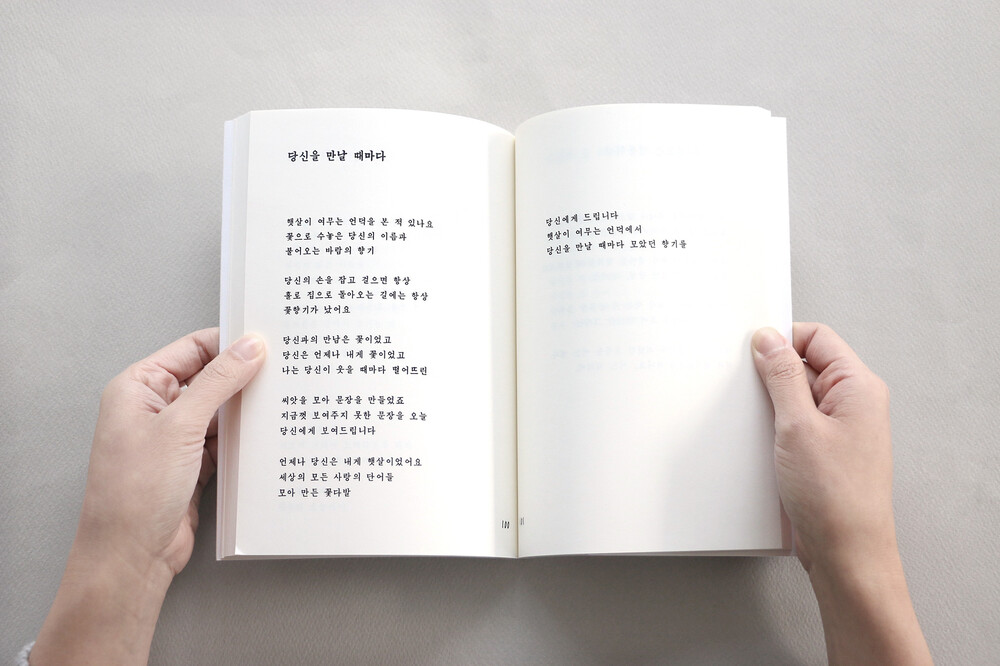 당신을 만날 때마다
햇살이 여무는 언덕을 본 적 있나요
꽃으로 수놓은 당신의 이름과
불어오는 바람의 향기
당신의 손을 잡고 걸으면 항상
홀로 집으로 돌아오는 길에는 항상
꽃향기가 났어요
당신과의 만남은 꽃이었고
당신은 언제나 내게 꽃이었고
나는 당신이 웃을 때마다 떨어뜨린
씨앗을 모아 문장을 만들었죠
지금껏 보여주지 못한 문장을 오늘
당신에게 보여드립니다
언제나 당신은 내게 햇살이었어요
세상의 모든 사랑의 단어들
모아 만든 꽃다발
100
당신에게 드립니다
햇살이 여무는 언덕에서
당신을 만날 때마다 모았던 향기를